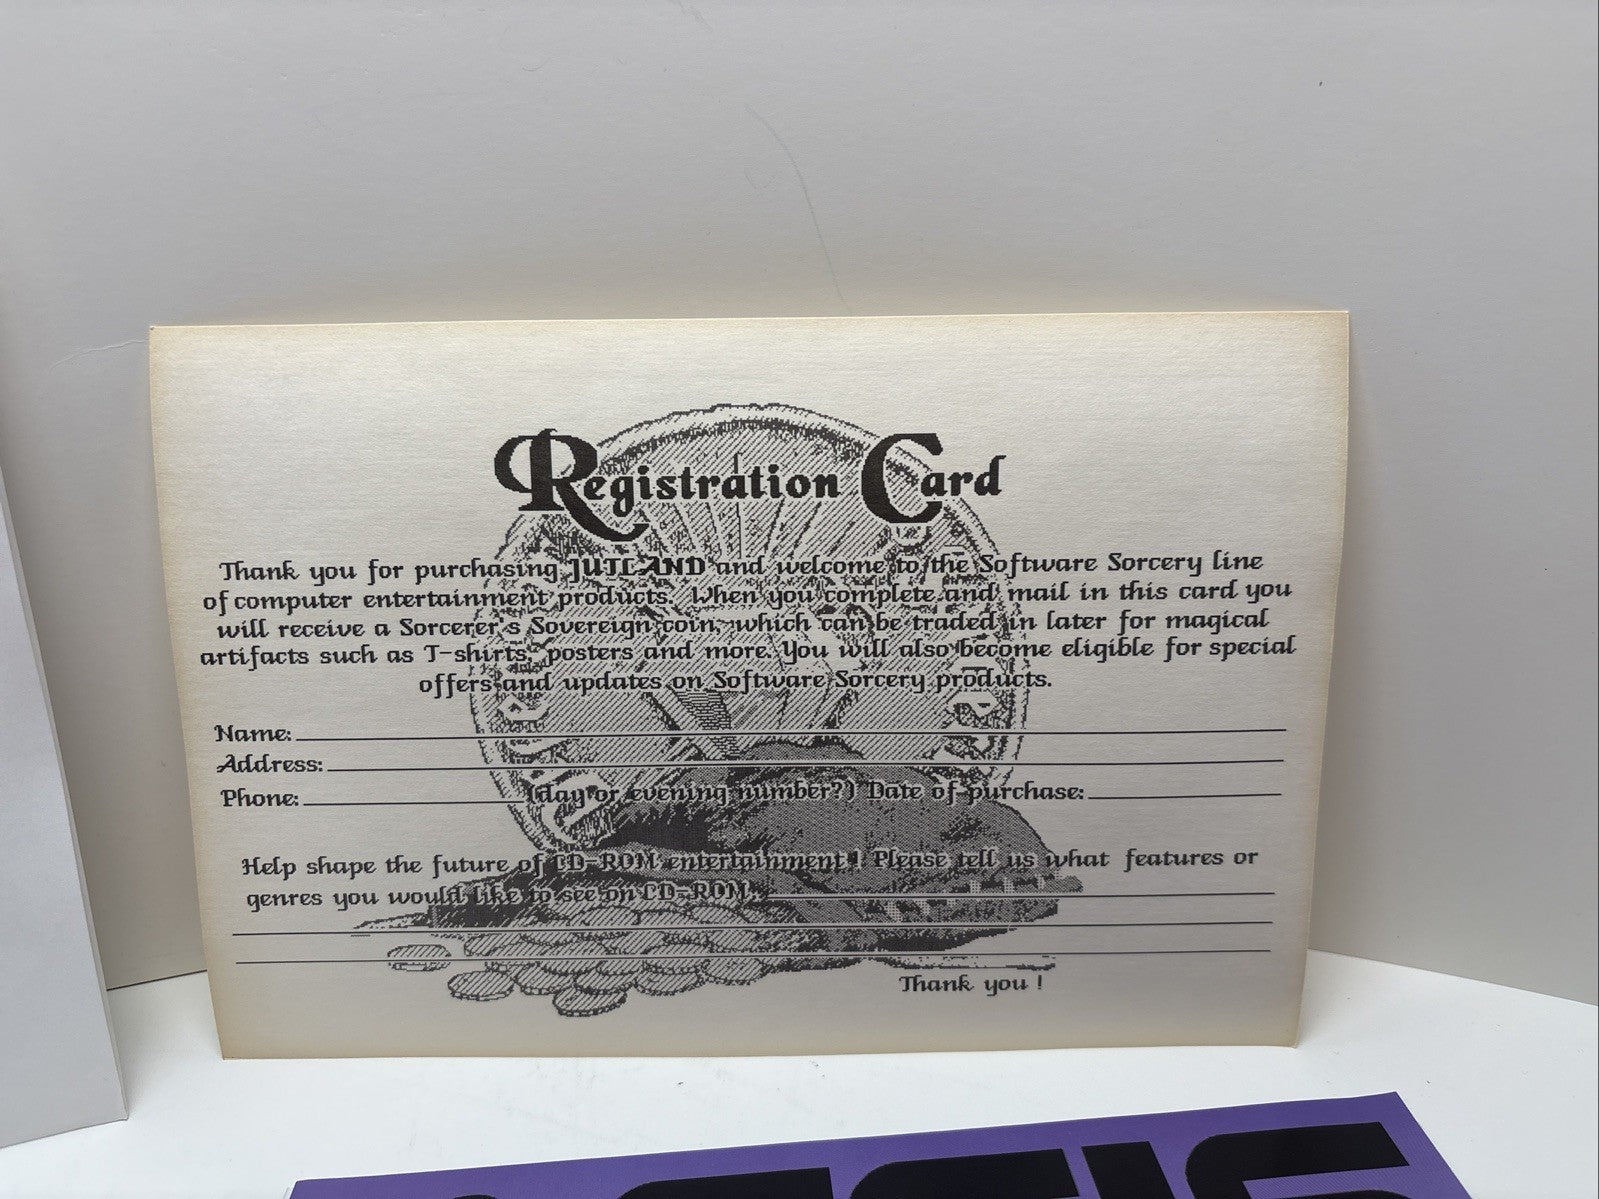 Registration Card
Thank you for purchasing JUTLAND and welcome to the Software Sorcery line
of computer entertainment products. When you complete and mail in this card you
will receive a Sorcerer's Sovereign coin, which can be traded in later for magical
artifacts such as T-shirts, posters and more. You will also become eligible for special
offers and updates on Software Sorcery products.
Name:
Address:
Phone: (day or evening number?) Date of purchase:
Help shape the future of CD-ROM entertainment! Please tell us what features or
genres you would like to see on CD-ROM.
Thank you!